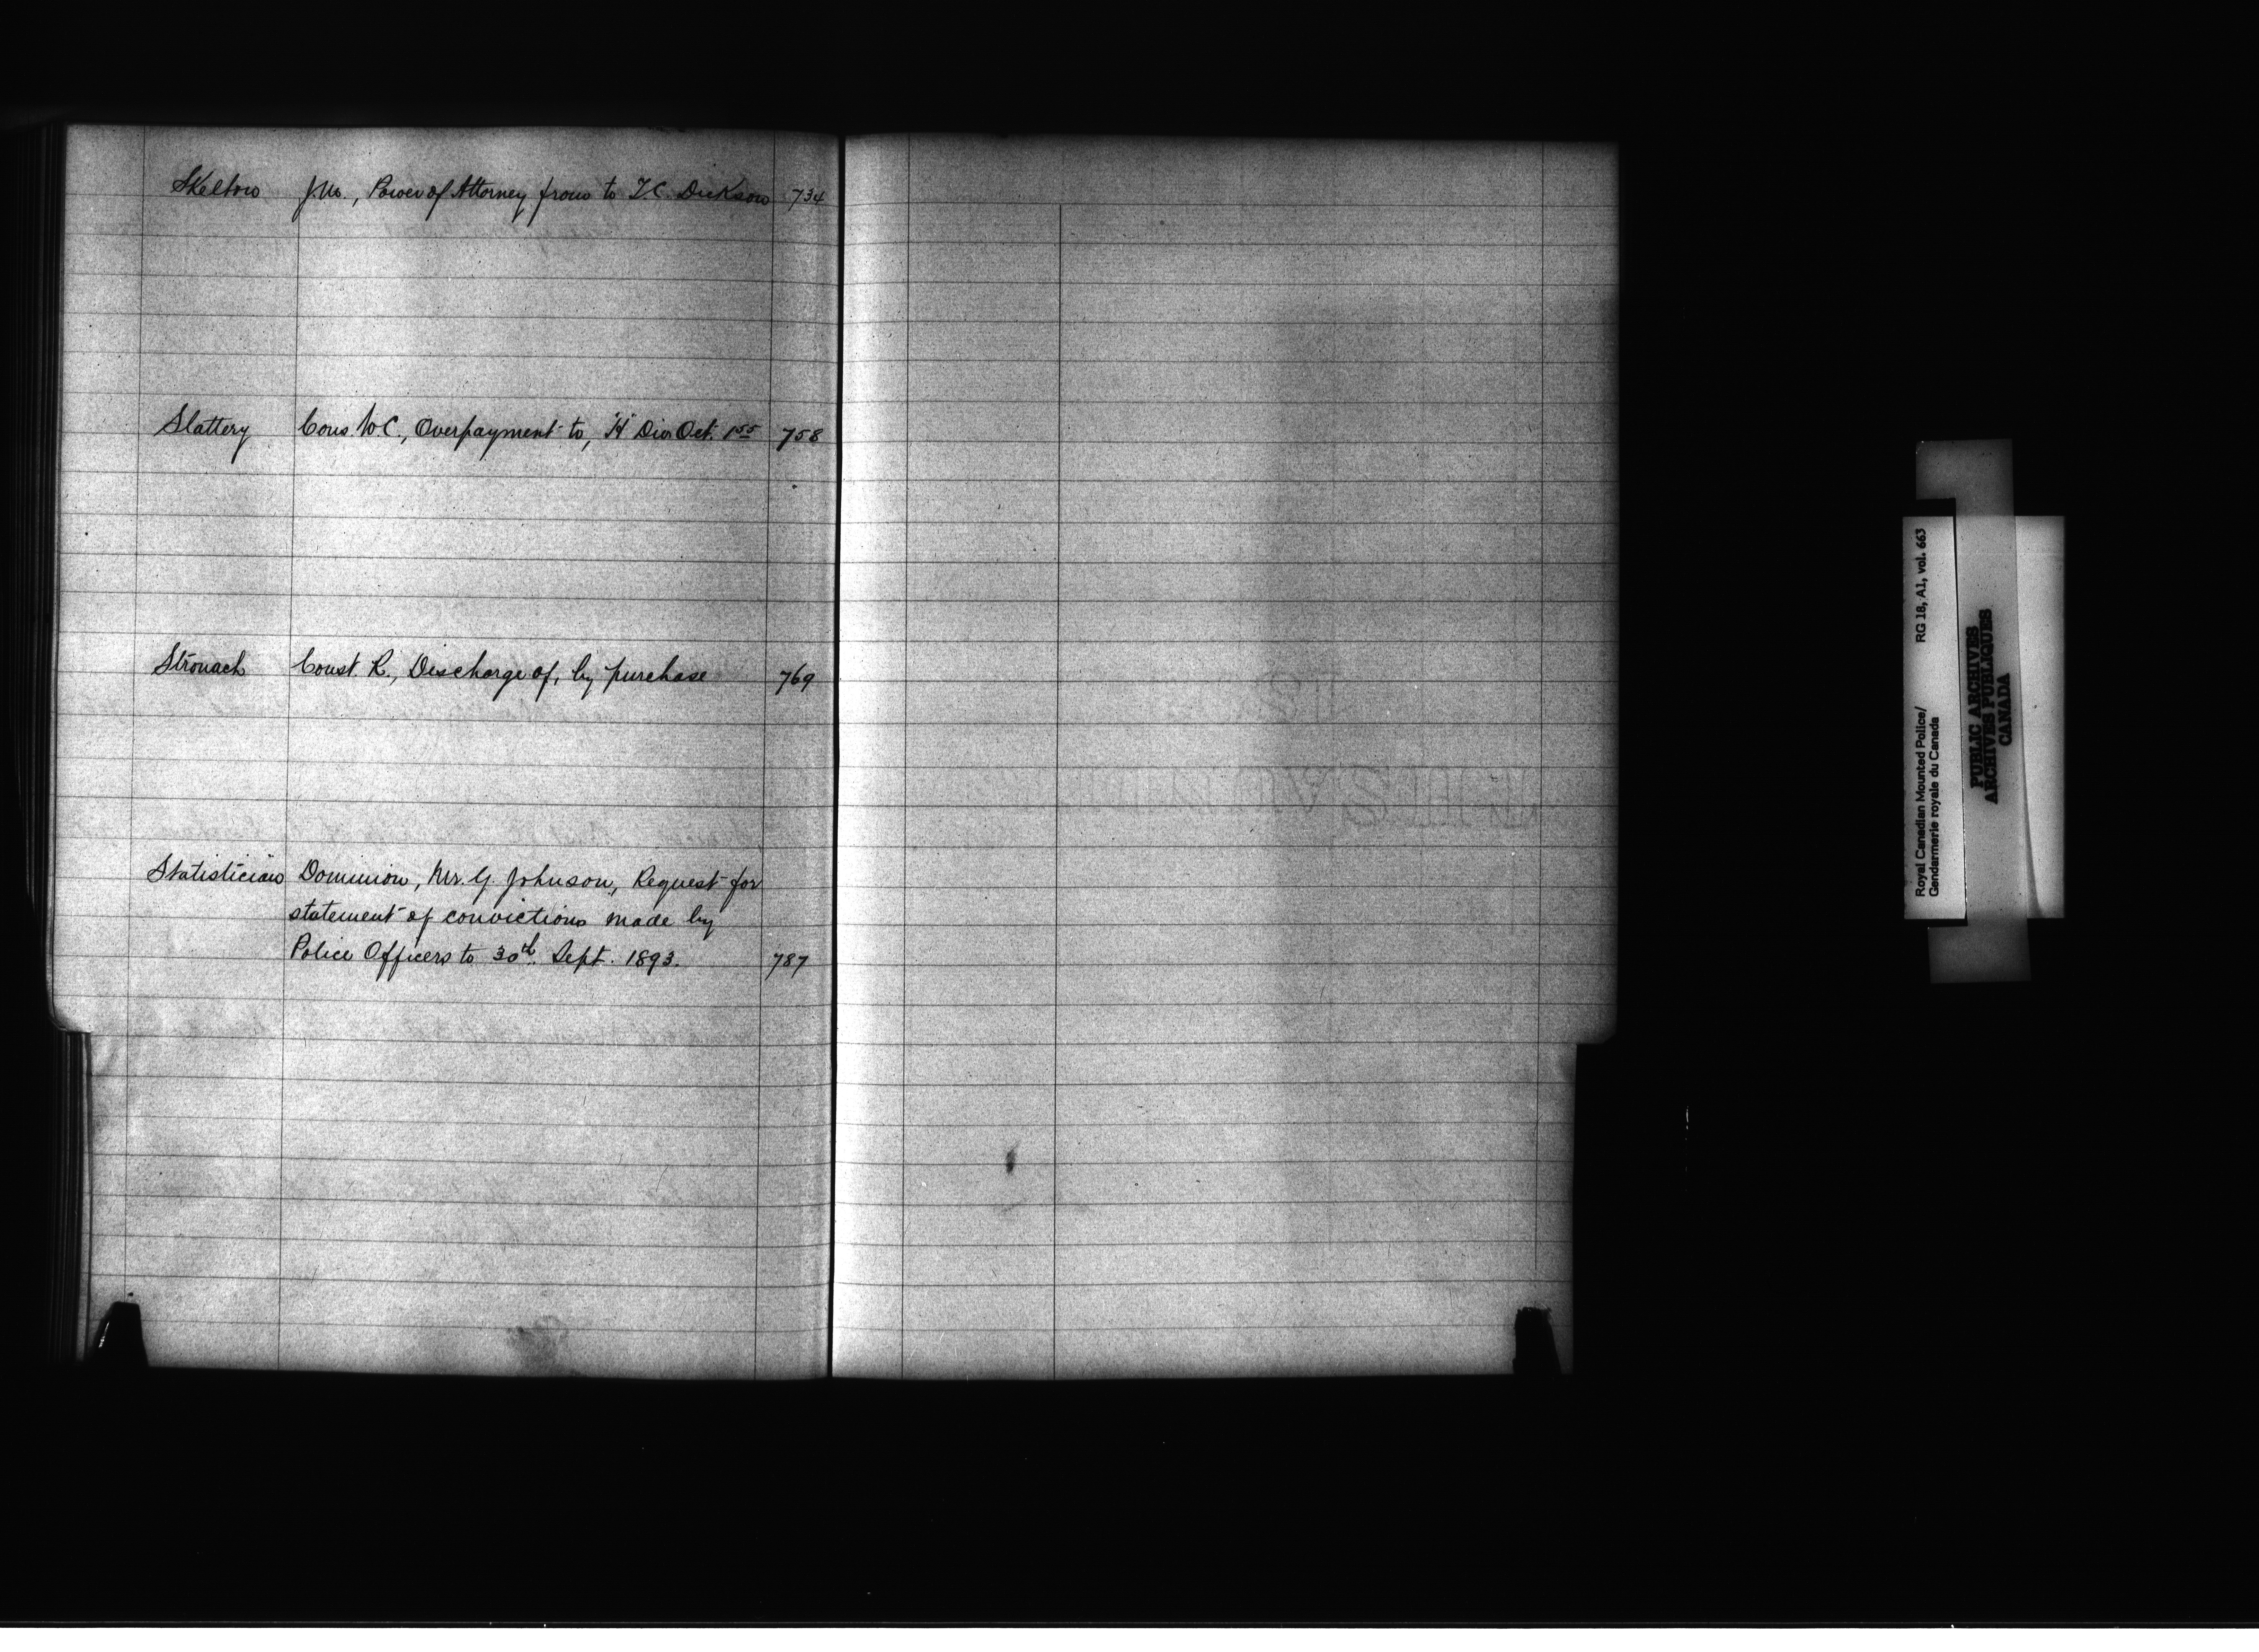 Skelton J.M., Power of Attorney from to T.C. Dickson 734
Slattery Cons. W.C., Overpayment to, "H" Div. Oct. 1.55 758
Stronach Const. R., Discharge of, by purchase 769
Statistician Dominion, Mr. G. Johnson, Request for
statement of convictions made by
Police Officers to 30th. Sept. 1893. 787
Royal Canadian Mounted Police/ RG 18, A1, vol. 663
Gendarmerie royale du Canada
PUBLIC ARCHIVES
ARCHIVES PUBLIQUES
CANADA